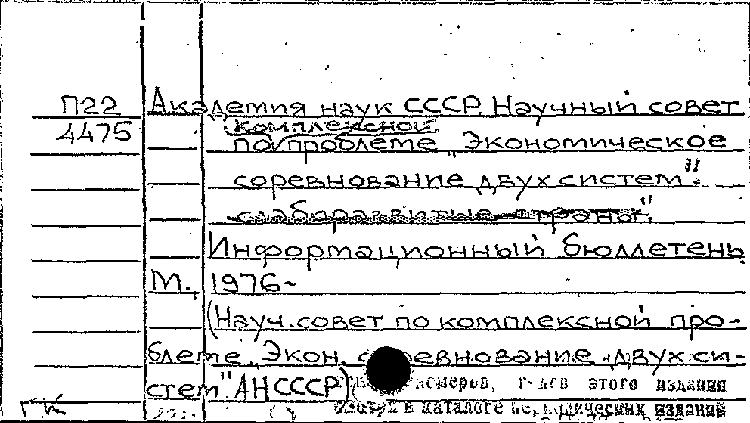 П22 Академия наук СССР. Научный совет
4475 комплексной
по проблеме „Экономическое
соревнование двух систем".
слаборазвитые страны"
Информационный бюллетень
М., 1976-
(Науч. совет по комплексной про-
блеме „Экон. соревнование двух си-
стем" АН СССР)
номеров, г-дев этого издания
в каталоге периодических изданий
ГК